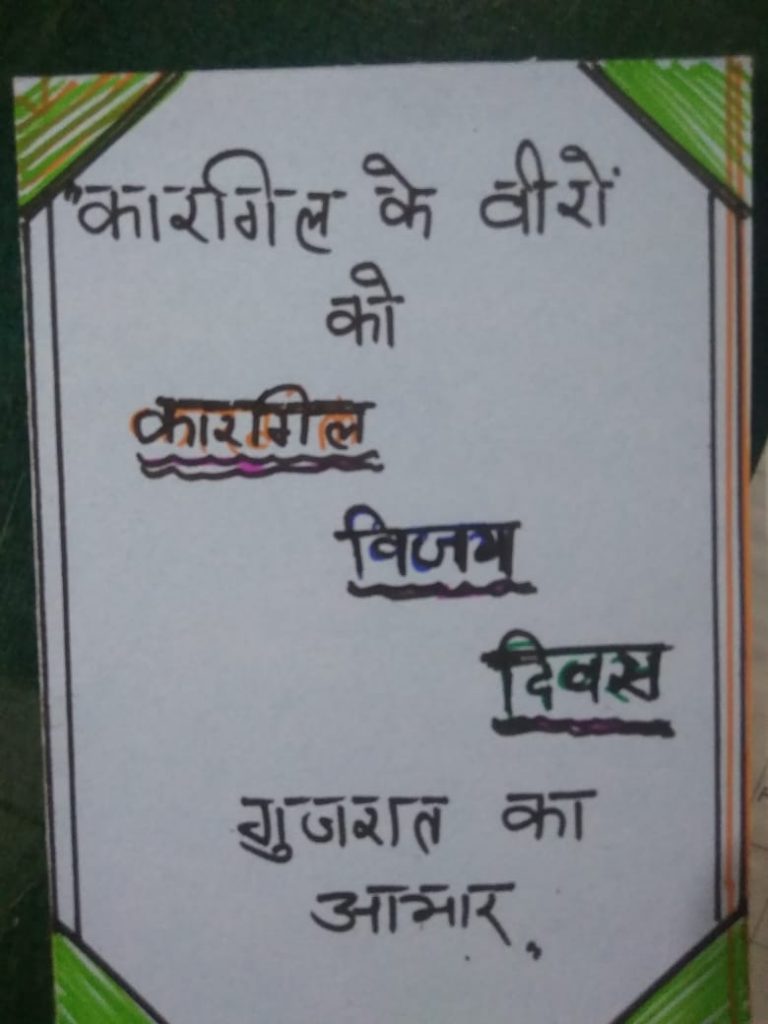 "कारगिल के वीरों
को
कारगिल
विजय
दिवस
गुजरात का
आभार"